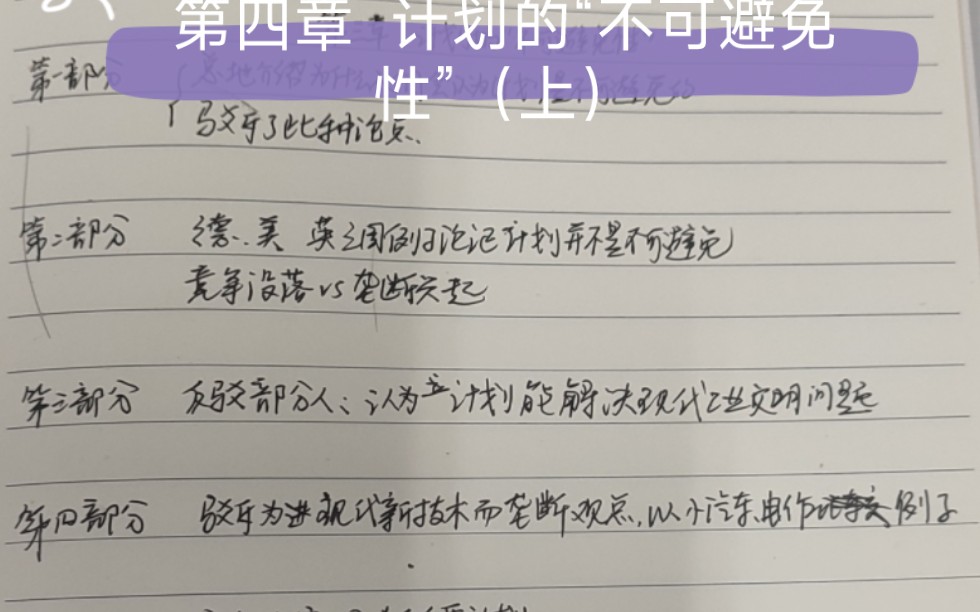 第四章 计划的“不可避免
性”（上）
第一部分
驳斥了此种论点.
第二部分 德.美 英三国例子论证计划并不是不可避免
竞争没落vs垄断兴起
第三部分 反驳部分人：认为计划能解决现代工业文明问题
第四部分 驳斥为进现代新技术而垄断观点,以小汽车,电作 例子